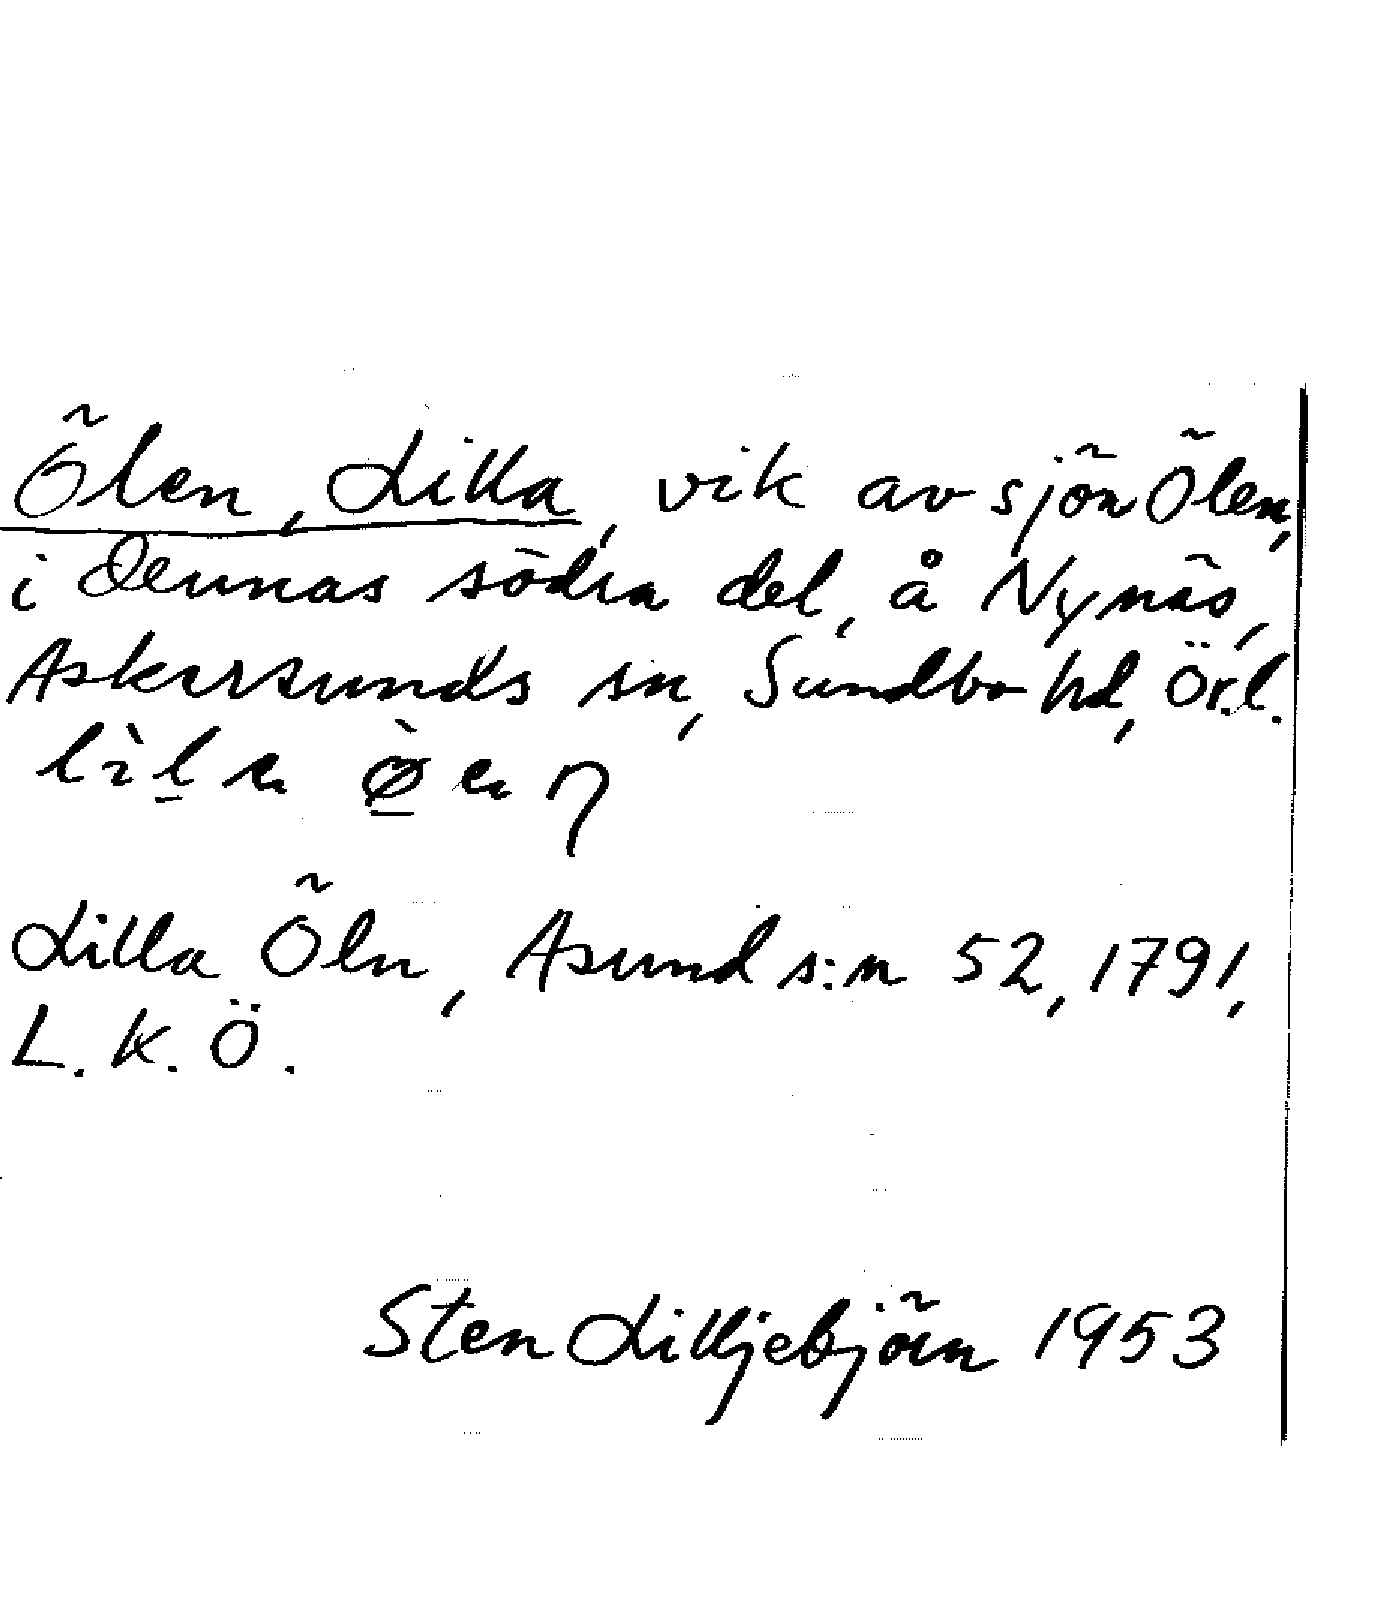 Ölen, Lilla, vik av sjön Ölen,
i dennas södra del, å Nynäs,
Askersunds sn, Sundbo hd, Ör.l.
Lilla Öln, Asund s:n 52, 1791,
L.K.Ö.
Sten Lilljebjörn 1953